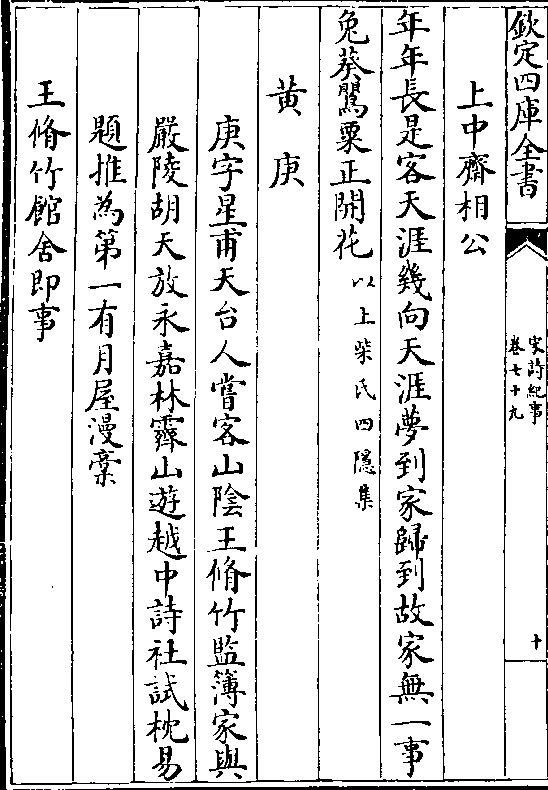 欽定四庫全書
宋詩紀事
卷七十九
十
上中齋相公
年年長是客天涯幾向天涯夢到家歸到故家無一事
兔葵鸎粟正開花以上柴氏四隱集
黄庚
庚字星甫天台人嘗客山陰王脩竹監簿家與
嚴陵胡天放永嘉林霽山遊越中詩社試枕易
題推為第一有月屋漫稾
王脩竹館舍即事